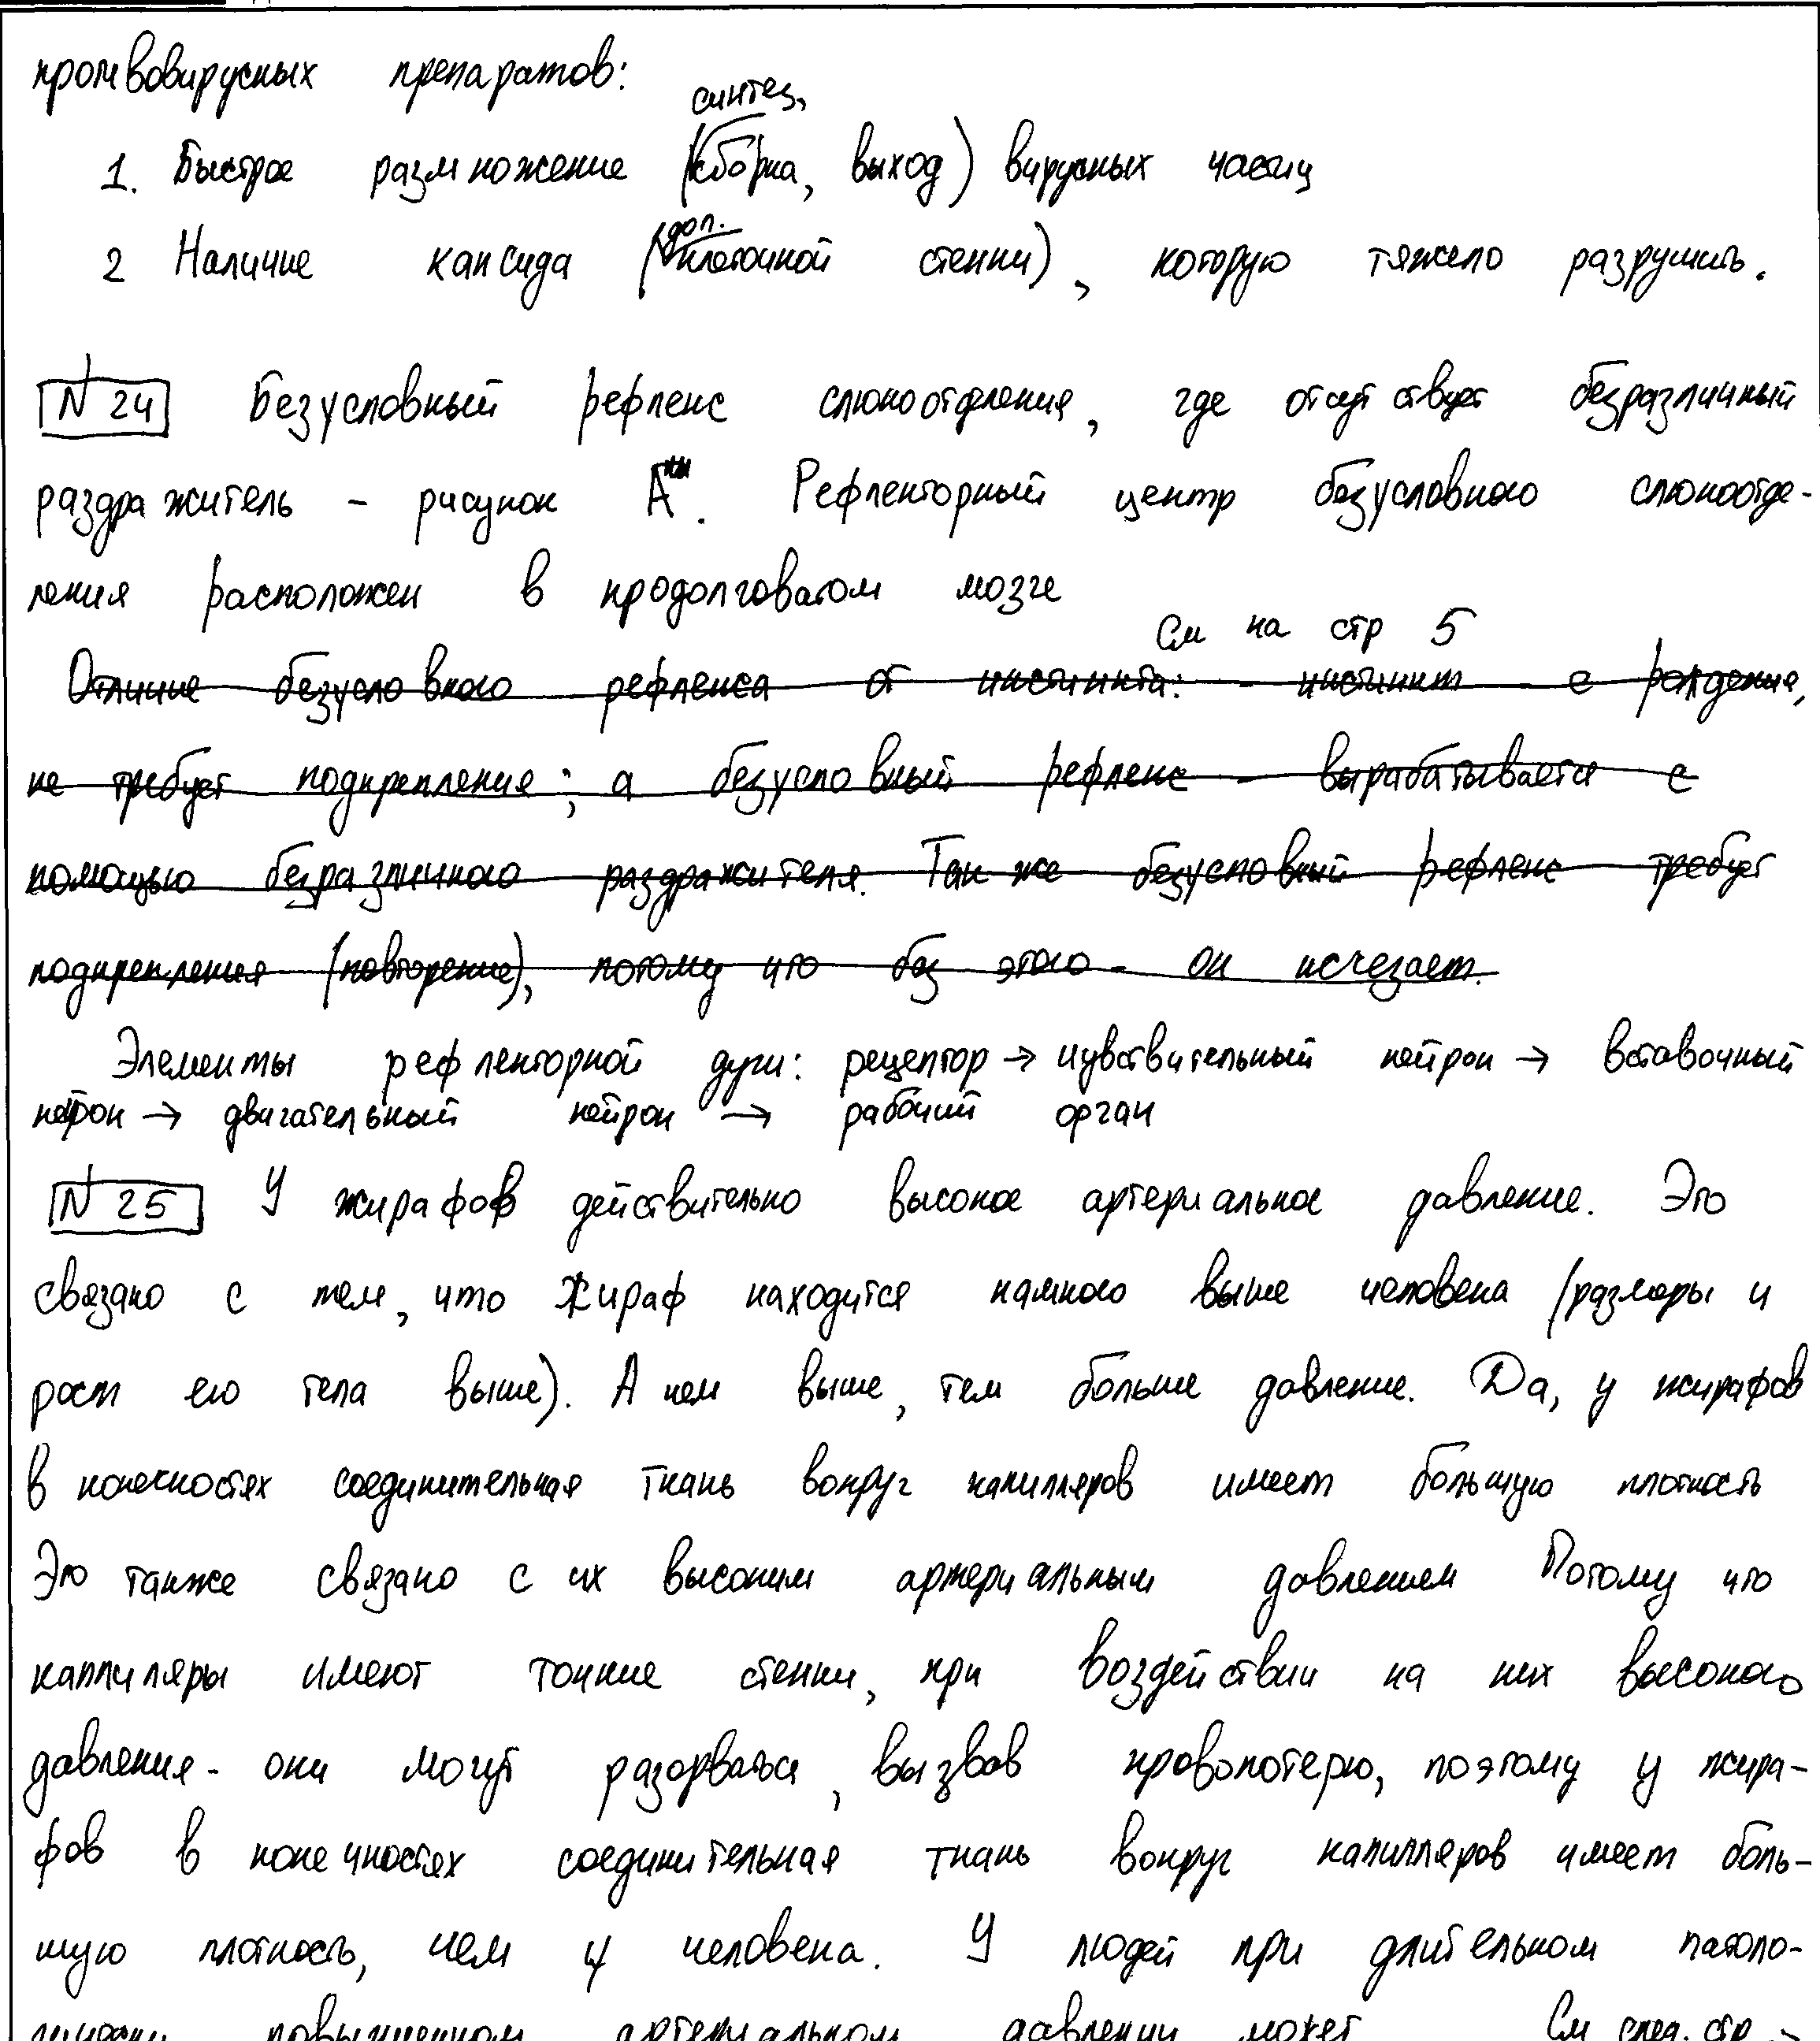 промвовирусных препаратов:
синтез,
1. Быстрое размножение (сборка, выход) вирусных частиц
доп.
2 Наличие капсида (клеточной стенки), которую тяжело разрушить.
N 24 Безусловный рефлекс слюноотделения, где отсутствует безразличный
раздражитель - рисунок А. Рефлекторный центр безусловного слюноотде-
ления расположен в продолговатом мозге
См на стр 5
Отличие безусловного рефлекса от инстинкта: - инстинкт - с рождения,
не требует подкрепления; а безусловный рефлекс - вырабатывается с
помощью безразличного раздражителя. Так же безусловный рефлекс требует
подкрепления (повторение), потому что без этого - он исчезает.
Элементы рефлекторной дуги: рецептор → чувствительный нейрон → вставочный
нейрон → двигательный нейрон → рабочий орган
N 25 У жирафов действительно высокое артериальное давление. Это
связано с тем, что жираф находится намного выше человека (размеры и
рост его тела выше). А чем выше, тем больше давление. Да, у жирафов
в конечностях соединительная ткань вокруг капилляров имеет большую плотность
Это также связано с их высоким артериальным давлением Потому что
каппиляры имеют тонкие стенки, при воздействии на них высокого
давления - они могут разорваться, вызвав кровопотерю, поэтому у жира-
фов в конечностях соединительная ткань вокруг капилляров имеет боль-
шую плотность, чем у человека. У людей при длительном патоло-
гически повышенном артериальном давлении может См след. стр →